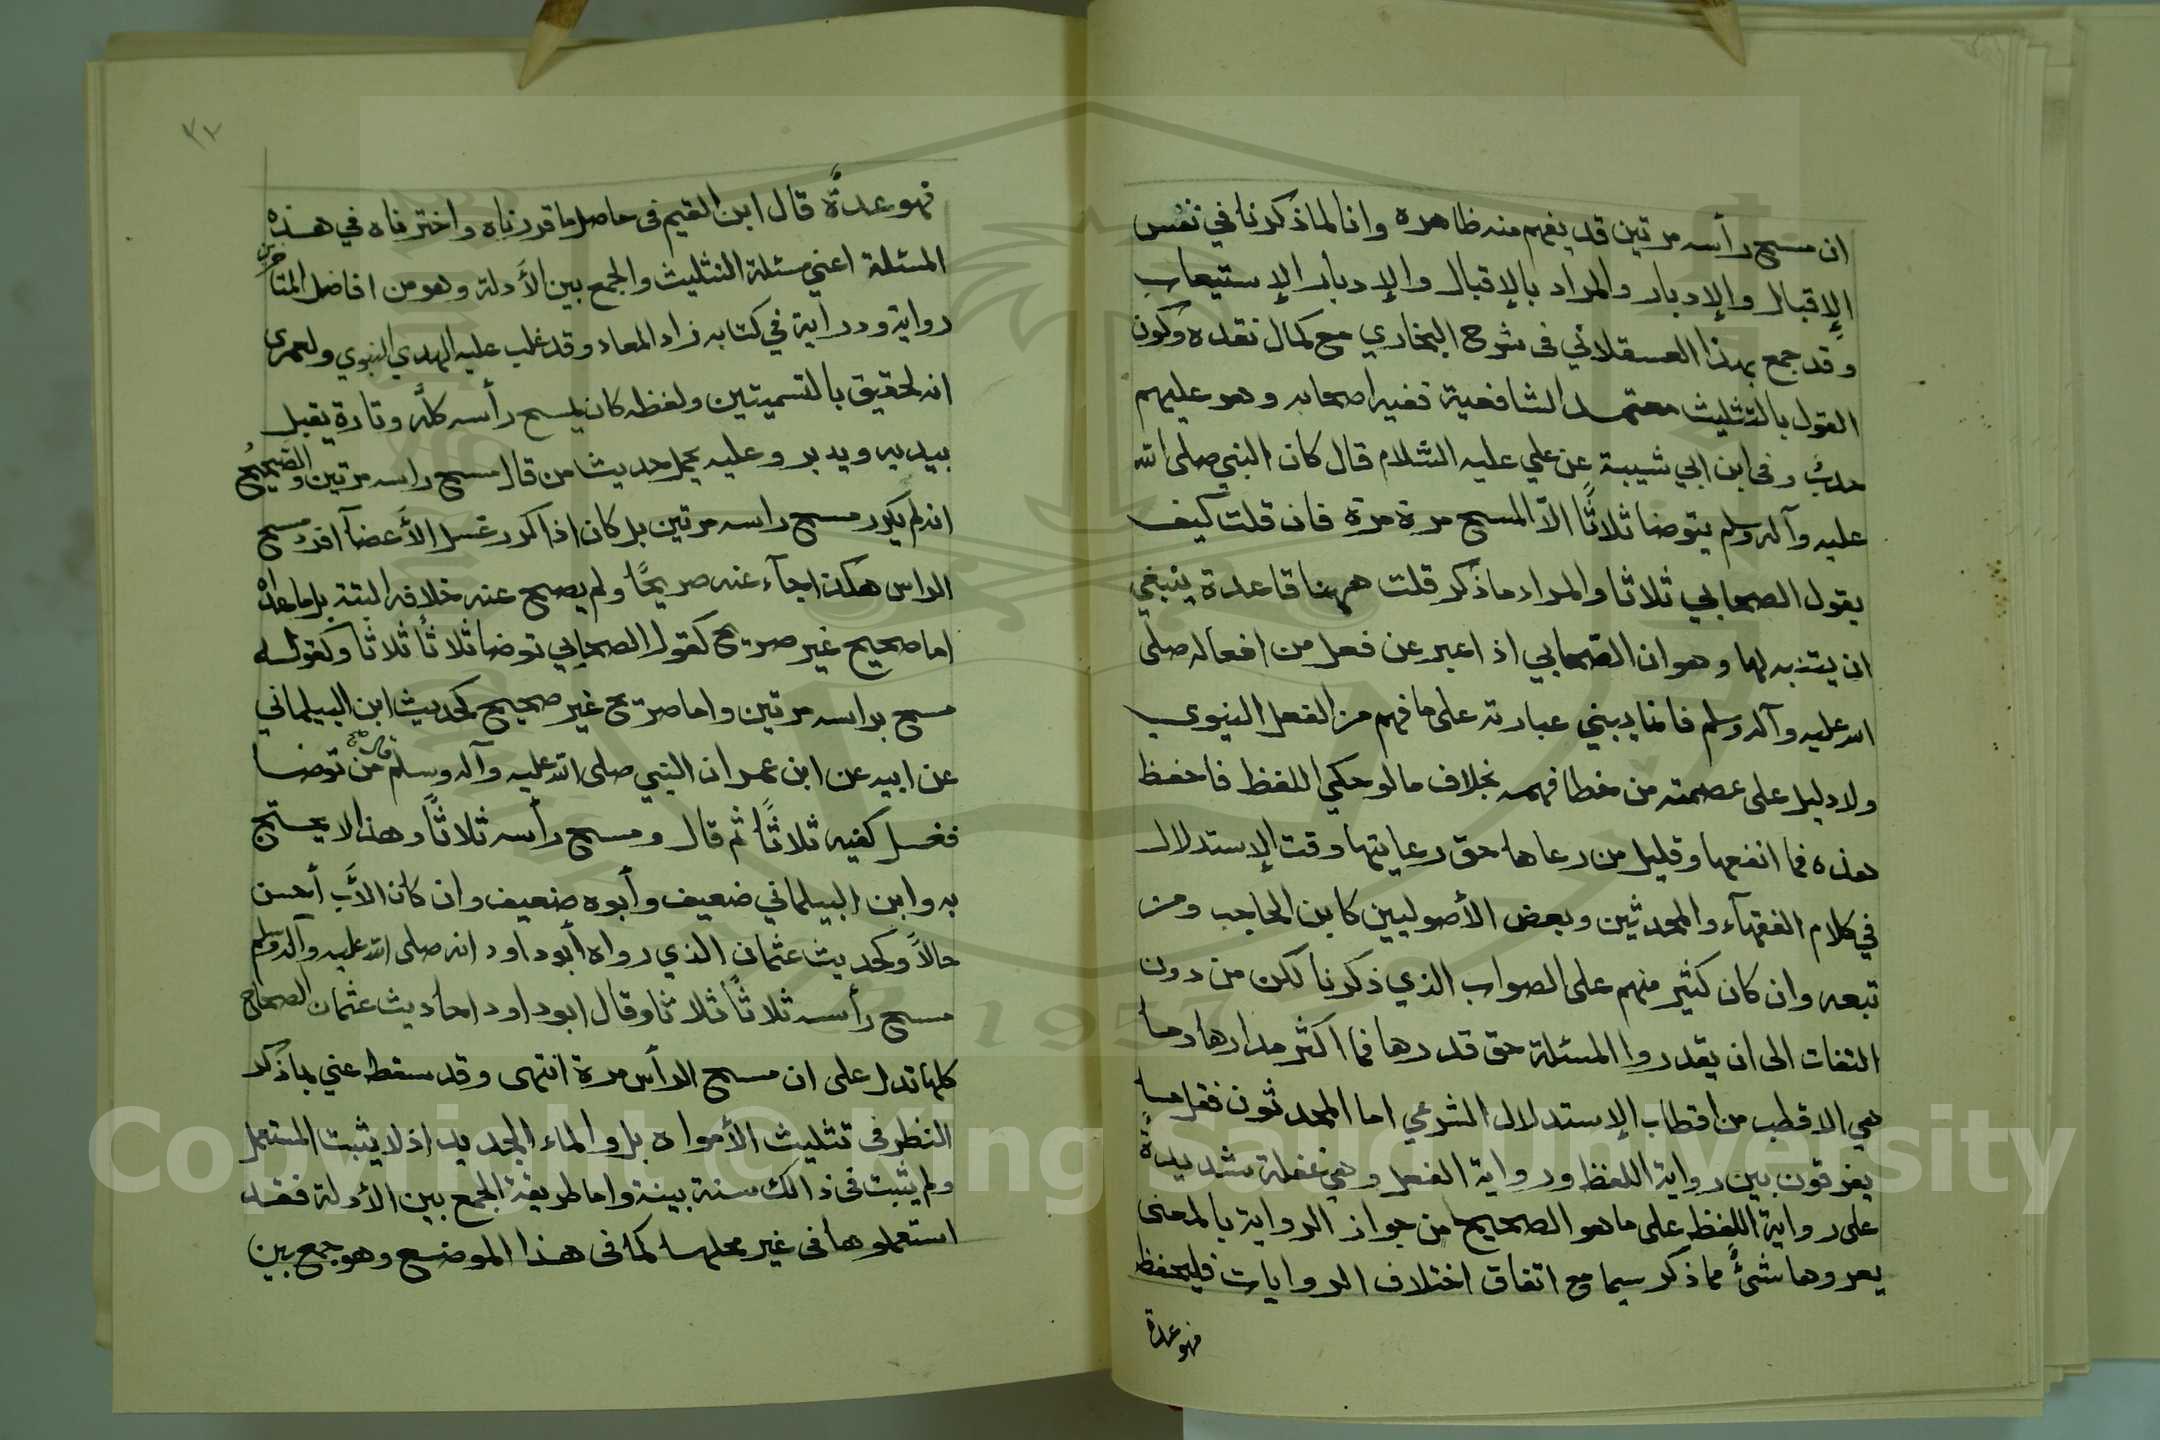 ان مسح رأسه مرتين قد يفهم منه ظاهره وانا لما ذكرنا في نفس
الإقبال والإدبار والمراد بالإقبال والإدبار الإستيعاب
وقد جمع بهذا العسقلاني فى شرح البخاري مع كمال نقده وكون
القول بالتثليث معتمد الشافعية ففيه اصحابه وهو عليهم
حدبٌ وفى ابن ابي شيبة عن علي عليه السّلام قال كان النبي صلى الله
عليه وآله وسلم يتوضا ثلاثًا الاّ المسح مرة مرة فان قلت كيف
يقول الصحابي ثلاثا والمراد ما ذكر قلت ههنا قاعدة ينبغي
ان يتنبه لها وهو ان الصّحابي اذا عبر عن فعل من افعاله صلّى
الله عليه وآله وسلم فانما يبني عبارته على ما فهم من الفعل النبوي
ولا دليل على عصمته من خطا فهمه بخلاف ما لو حكي اللفظ فاحفظ
هذه فما انفعها وقليل من رعاها حق رعايتها وقت الإستدلال
في كلام الفقهآء والمحدثين وبعض الأصوليين كابن الحاجب ومن
تبعه وان كان كثير منهم على الصواب الذي ذكرنا لكن من دون
التفات الى ان يقدروا المسئلة حق قدرها فما اكثر مدارها وما
هي الا قطب من اقطاب الإستدلال الشرعي اما المحدثون فقل ما
يفرقون بين رواية اللفظ ورواية الفعل وهي غفلة شديدة
على رواية اللفظ على ما هو الصحيح من جواز الرواية بالمعنى
يعروها شئٌ مما ذكر سيما مع اتفاق اختلاف الروايات فليحفظ
فهو عدة
٣٢
فهو عدةٌ قال ابن القيم فى حاصل ما قررناه واخترناه في هذه
المسئلة اعني مسئلة التثليث والجمع بين الأدلة وهو من افاضل المتأخرين
رواية ودراية في كتابه زاد المعاد وقد غلب عليه الهدي النبوي ولعمري
انه لحقيق بالتسميتين ولفظه كان يمسح رأسه كلّه وتارة يقبل
بيديه ويدبر وعليه يحمل حديث من قال مسح راسه مرتين والصّحيح
انه لم يكرر مسح راسه مرتين بل كان اذا كرر غسل الأعضآ افرد مسح
الراس هكذا جآء عنه صريحًا ولم يصح عنه خلافه البتة بل ما عداه
اما صحيح غير صريح كقول الصحابي توضا ثلاثًا ثلاثًا وكقوله
مسح براسه مرتين واما صريح غير صحيح كحديث ابن البيلماني
عن ابيه عن ابن عمر ان النبي صلى الله عليه وآله وسلم قال من توضا
فغسل كفيه ثلاثًا ثم قال ومسح رأسه ثلاثًا وهذا لا يحتج
به وابن البيلماني ضعيف وأبوه ضعيف وان كان الأب أحسن
حالاً وكحديث عثمان الذي رواه أبو داود انه صلى الله عليه وآله وسلم
مسح رأسه ثلاثًا ثلاثا وقال ابو داود احاديث عثمان الصحاح
كلها تدل على ان مسح الرأس مرة انتهى وقد سقط عني بما ذكر
النظر فى تثليث الأمواه بل والماء الجديد اذ لا يثبت المستعمل
ولم يثبت فى ذالك سنة بينة واما طريقة الجمع بين الأدلة فقد
استعملوها فى غير محلها كما فى هذا الموضع وهو جمع بين
1957
Copyright © King Saud University